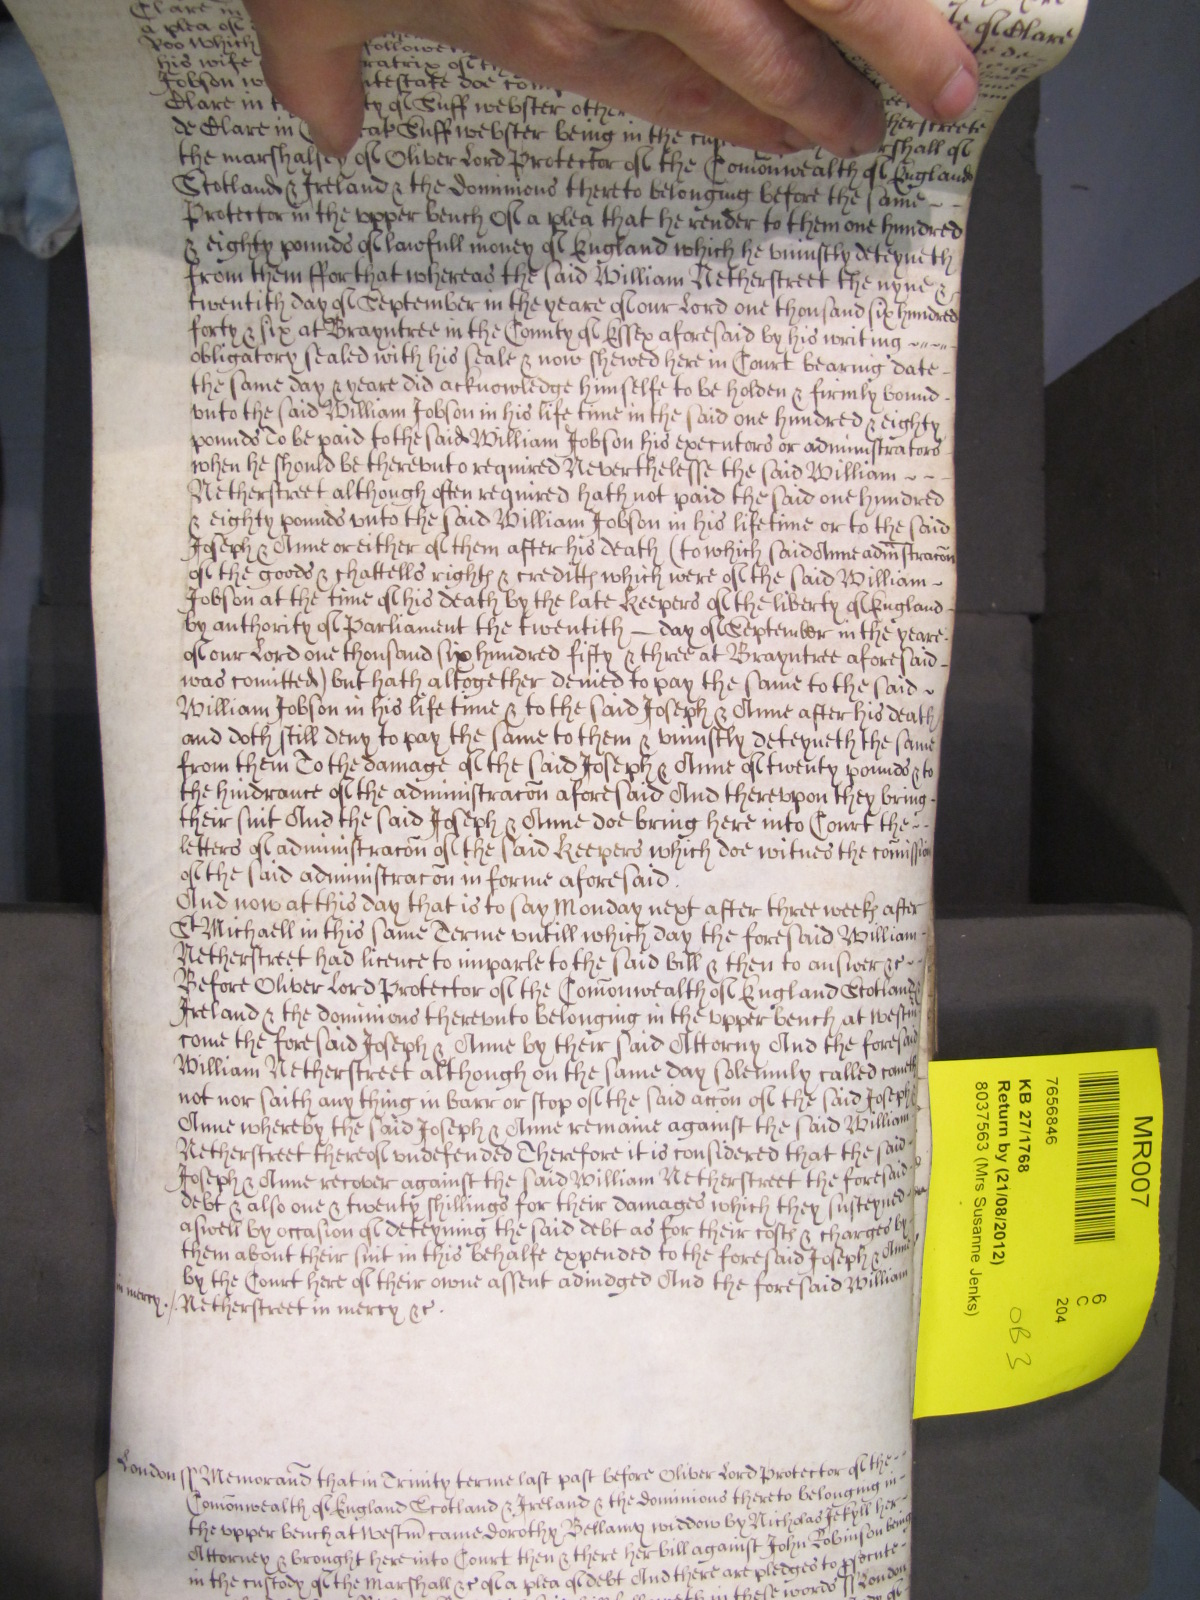 Clare in
a plea of
Roo which followe
his wife ratrix of th
Jobson w ntestate doe com
Clare in t ty of Suff webster other
de Clare in C Suff webster being in the cus rshall of
the marshalsey of Oliver Lord Protector of the Comonwealth of England
Scotland & Ireland & the dominions thereto belonging before the same
Protector in the upper bench Of a plea that he render to them one hundred
& eighty pounds of lawfull money of England which he uniustly deteyneth
from them ffor that whereas the said William Netherstreet the nyne &
twentith day of September in the yeare of our Lord one thousand six hundred
forty & six at Brayntree in the County of Essex aforesaid by his writing
obligatory sealed with his seale & now shewed here in Court bearing date
the same day & yeare did acknowledge himselfe to be holden & firmly bound
vnto the said William Jobson in his life time in the said one hundred & eighty
pounds To be paid to the said William Jobson his executors or administrators
when he should be therevnto required Neverthelesse the said William
Netherstreet although often required hath not paid the said one hundred
& eighty pounds vnto the said William Jobson in his lifetime or to the said
Joseph & Anne or either of them after his death (to which said Anne admstracon
of the goods & chattells rights & creditts which were of the said William
Jobson at the time of his death by the late Keepers of the liberty of England
by authority of Parliament the twentith — day of September in the yeare
of our Lord one thousand six hundred fifty & three at Brayntree aforesaid
was comitted) but hath altogether denied to pay the same to the said
William Jobson in his life time & to the said Joseph & Anne after his death
and doth still deny to pay the same to them & vniustly deteyneth the same
from them To the damage of the said Joseph & Anne of twenty pounds & to
the hindrance of the administracon aforesaid And therevpon they bring
their suit And the said Joseph & Anne doe bring here into Court the
letters of administracon of the said Keepers which doe witnes the comission
of the said administracon in forme aforesaid.
And now at this day that is to say Monday next after three weeks after
St Michaell in this same Terme vntill which day the foresaid William
Netherstreet had licence to imparle to the said bill & then to answer &c
Before Oliver Lord Protector of the Comonwealth of England Scotland &
Ireland & the dominions therevnto belonging in the vpper bench at Westm
come the foresaid Joseph & Anne by their said Attorny And the foresaid
William Netherstreet although on the same day solemnly called cometh
not nor saith any thing in barr or stop of the said accon of the said Joseph &
Anne whereby the said Joseph & Anne remaine against the said William
Netherstreet thereof vndefended Therefore it is considered that the said
Joseph & Anne recover against the said William Netherstreet the foresaid
debt & also one & twenty shillings for their damages which they susteyned
aswell by occasion of deteyning the said debt as for their costs & charges by
them about their suit in this behalfe expended to the foresaid Joseph & Anne
by the Court here of their owne assent adiudged And the foresaid William
in mercy. Netherstreet in mercy &c.
London ss Memorand that in Trinity terme last past before Oliver Lord Protector of the
Comonwealth of England Scotland & Ireland & the dominions thereto belonging in
the vpper bench at Westm came Dorothy Bellamy widdow by Nicholas Jekyll her
Attorney & brought here into Court then & there her bill against John Robinson being
in the custody of the Marshall &c of a plea of debt And there are pledges to psecute
in these words ss London
MR007
7656846
KB 27/1768
Return by (21/08/2012)
8037563 (Mrs Susanne Jenks)
6
C
204
OB 3